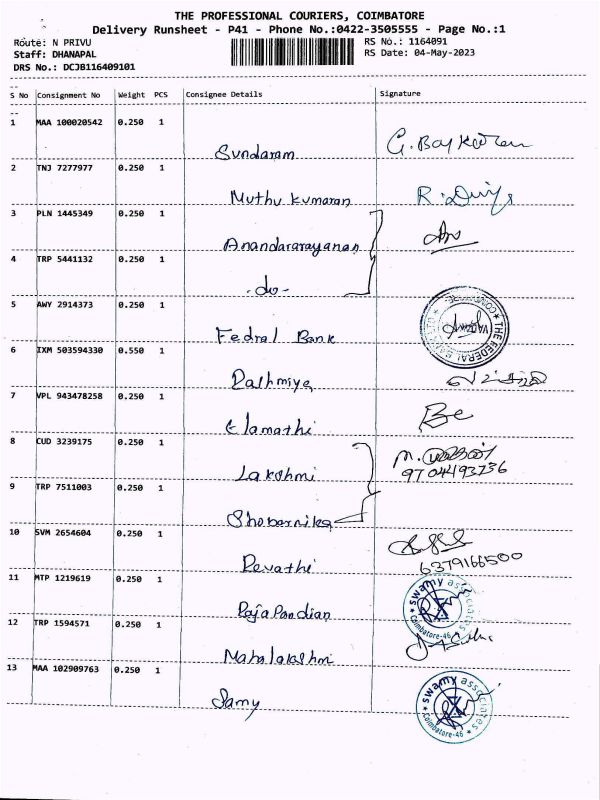 THE PROFESSIONAL COURIERS, COIMBATORE
Delivery Runsheet - P41 - Phone No.:0422-3505555 - Page No.:1
Route: N PRIVU RS No.: 1164091
Staff: DHANAPAL RS Date: 04-May-2023
DRS No.: DCJB116409101
S No Consignment No Weight PCS Consignee Details Signature
1 MAA 100020542 0.250 1
Sundaram
2 TNJ 7277977 0.250 1
Muthu kumaran
3 PLN 1445349 0.250 1
Anandararayanan
4 TRP 5441132 0.250 1
-do-
5 AWY 2914373 0.250 1
Fedral Bank
THE FEDERAL
6 IXM 503594330 0.550 1
Dalhmiya
7 VPL 943478258 0.250 1
Elamathi
8 CUD 3239175 0.250 1
Lakshmi
9704493736
9 TRP 7511003 0.250 1
Shobarnika
10 SVM 2654604 0.250 1
Revathi
6379166500
11 MTP 1219619 0.250 1
Raja Pandian
swamy associates
Coimbatore-46
12 TRP 1594571 0.250 1
Mahalakshmi
13 MAA 102909763 0.250 1
Samy
swamy associates
Coimbatore-46